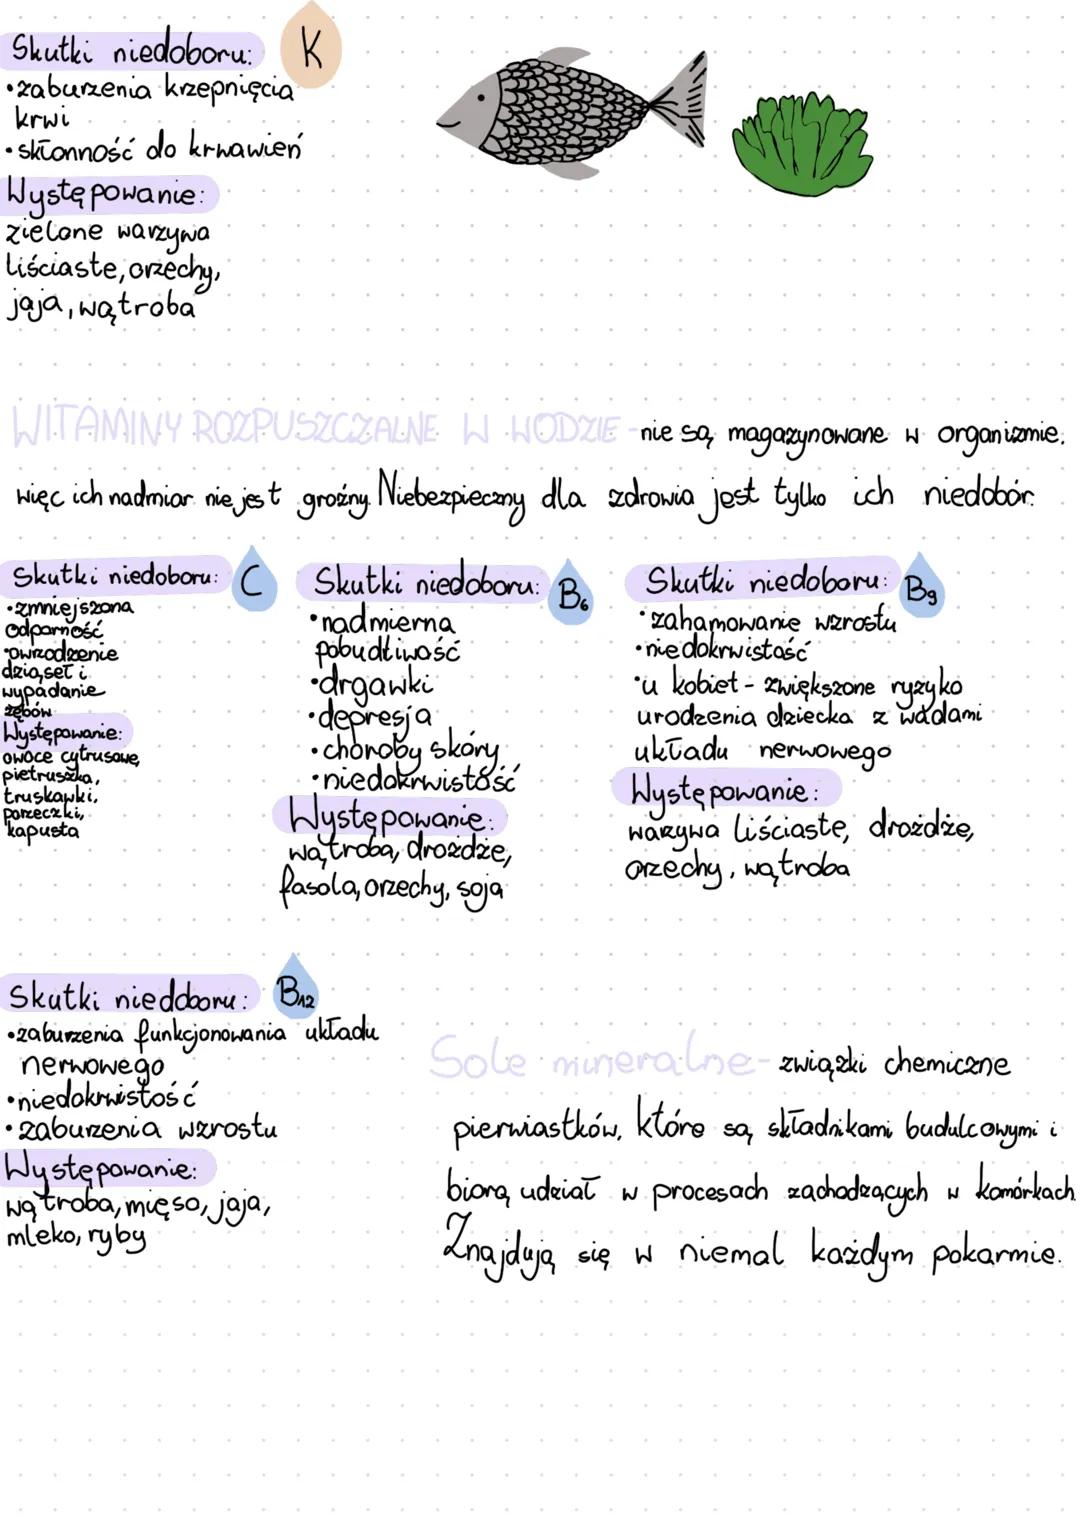 Skutki niedoboru: K
•zaburzenia krzepnięcia
krwi
•skłonność do krwawień
Występowanie:
zielone warzywa
liściaste, orzechy,
jaja, wątroba
WITAMINY ROZPUSZCZALNE W WODZIE - nie są magazynowane w organizmie.
więc ich nadmiar nie jest groźny. Niebezpieczny dla zdrowia jest tylko ich niedobór.
Skutki niedoboru: C
•zmniejszona
odporność
•owrzodzenie
dziąseł i
wypadanie
zębów
Występowanie:
owoce cytrusowe,
pietruszka,
truskawki,
porzeczki,
kapusta
Skutki niedoboru: B6
•nadmierna
pobudliwość
•drgawki
•depresja
•choroby skóry
•niedokrwistość
Występowanie:
wątroba, drożdże,
fasola, orzechy, soja
Skutki niedoboru: B9
•zahamowanie wzrostu
•niedokrwistość
•u kobiet - zwiększone ryzyko
urodzenia dziecka z wadami
układu nerwowego
Występowanie:
warzywa liściaste, drożdże,
orzechy, wątroba
Skutki niedoboru: B12
•zaburzenia funkcjonowania układu
nerwowego
•niedokrwistość
•zaburzenia wzrostu
Występowanie:
wątroba, mięso, jaja,
mleko, ryby
Sole mineralne - związki chemiczne
pierwiastków, które są składnikami budulcowymi i
biorą udział w procesach zachodzących w komórkach.
Znajdują się w niemal każdym pokarmie.